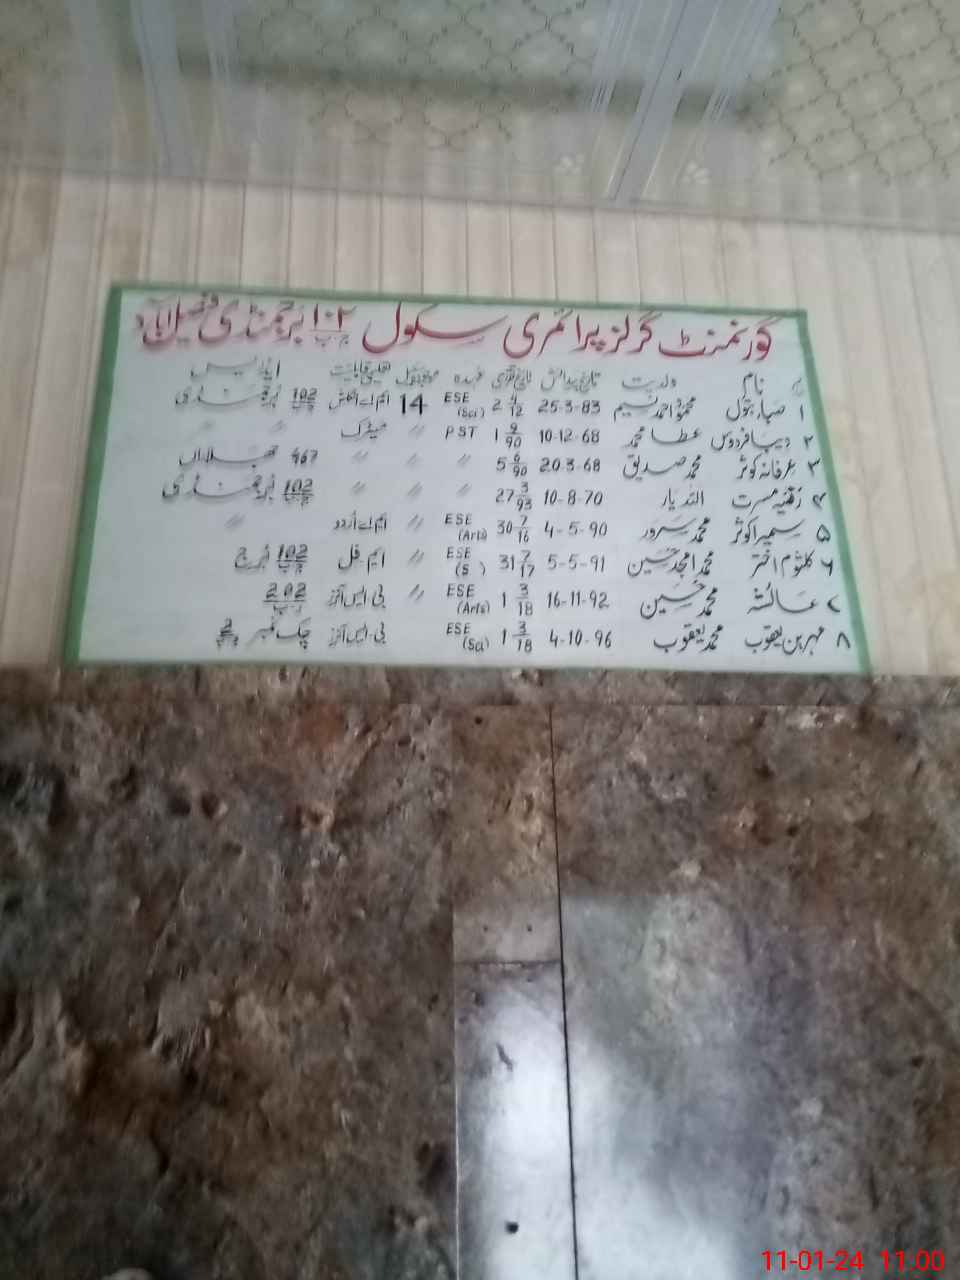 گورنمنٹ گرلز پرائمری سکول ۱۰۲ ج ب بُرج منڈی فیصل آباد
نام ولدیت تاریخ پیدائش تاریخ تقرری عہدہ تعلیمی قابلیت ایڈریس
۱ صباء بتول محمود احمد نسیم 25-3-83 2 4/12 ESE (Sci) 14 ایم اے انگلش 102 ج ب بُرج منڈی
۲ دیبا فردوس عطا محمد 10-12-68 1 9/90 PST 〃 میٹرک 〃 〃
۳ عرفانہ کوثر محمد صدیق 20-3-68 5 6/90 〃 〃 〃 467
۴ مسرت اللہ یار 10-8-70 27 3/93 〃 〃 〃 102 ج ب بُرج منڈی
۵ سمیرا کوثر محمد سرور 4-5-90 30 7/16 ESE (Arts) 〃 ایم اے اُردو 〃
۶ کلثوم اختر محمد امجد حسین 5-5-91 31 7/17 ESE (S ) 〃 ایم فل 102 ج ب بُرج
۷ عائشہ محمد حسین 16-11-92 1 3/18 ESE (Arts) 〃 بی ایس آنرز 202 ر ب
۸ مہر بن یعقوب محمد یعقوب 4-10-96 1 3/18 ESE (Sci) بی ایس آنرز چک نمبر
11-01-24 11:00